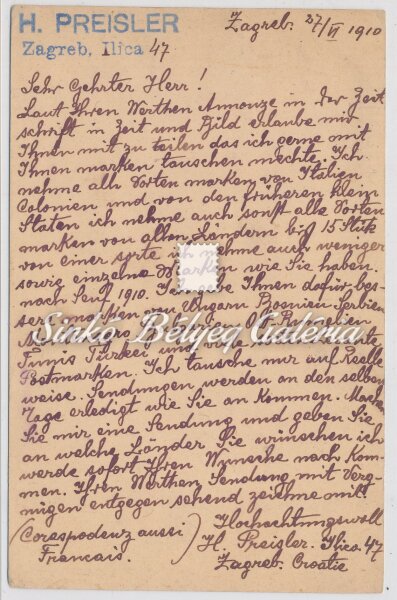 H. PREISLER
Zagreb, Ilica 47
Zagreb. 27/VI 1910
Sehr Gehrter Herr!
Laut Ihren Werthen Annonze in der Zeit
schrift in Zeit und Bild erlaube mir
Ihnen mit zu teilen das ich gerne mit
Ihnen marken tauschen mechte. Ich
nehme alle Sorten marken von Italien
Colonien und von den früheren klein
Staten ich nehme auch sonst alle Sorten
marken von allen Ländern bis 15 Stük
von einer sorte ich nehme auch weniger
sowie einzelne Marken wie Sie haben.
nach Senf 1910. Ich gebe Ihnen dafür bes-
sere marken von Ungarn Bosnien Serbien
Rumelien
Tunis Türkei und
Postmarken. Ich tausche nur auf Reelle
weise. Sendungen werden an den selben
Tage erledigt wie Sie an Kommen. Machen
Sie mir eine Sendung und geben Sie
an welche Länder Sie wünschen ich
werde sofort Ihren Wunsche nach Kom-
men. Ihren Werthen Sendung mit Verg-
nügen entgegen sehend zeichne mit
Hochachtungsvoll
(Corespodenz aussi) H. Preisler. Ilica 47
Francais. Zagreb. Croatie
Sinko Bélyeg Galéria